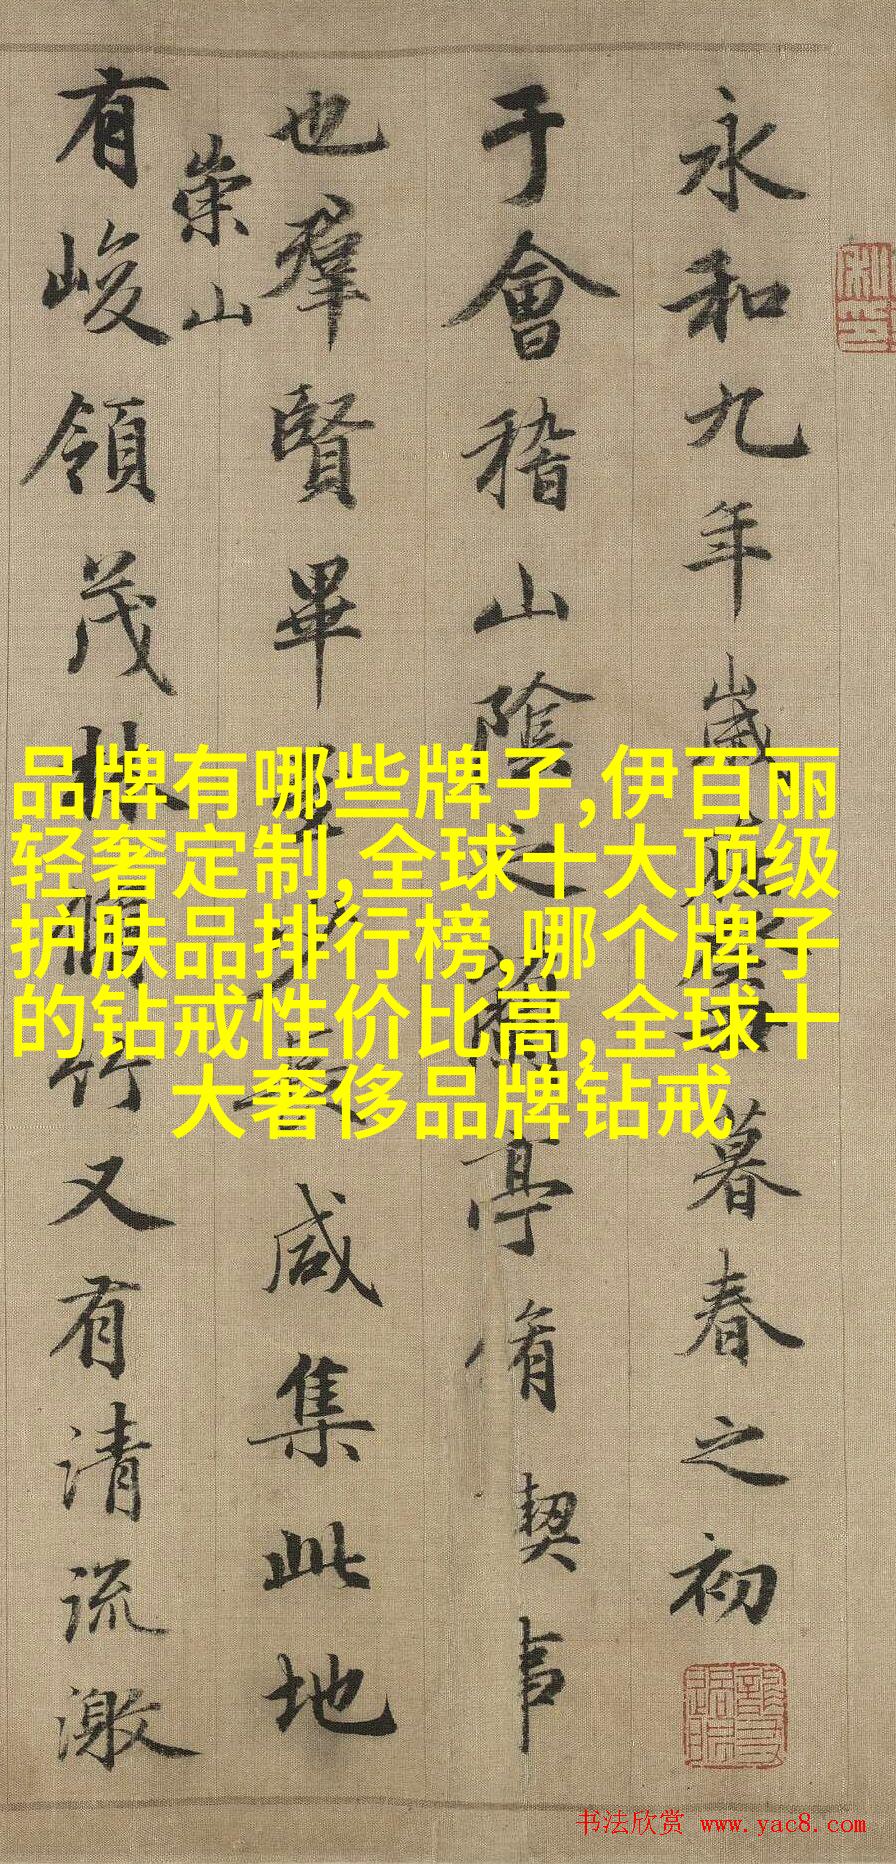 永和九年歲在癸丑暮春之初
于會稽山陰之蘭亭脩禊事
也羣賢畢至少長咸集此地
有崇山峻領茂林脩竹又有清流激
品牌有哪些牌子,伊百丽
轻奢定制,全球十大顶级
护肤品排行榜,哪个牌子
的钻戒性价比高,全球十
大奢侈品牌钻戒
书法欣赏 www.yac8.com